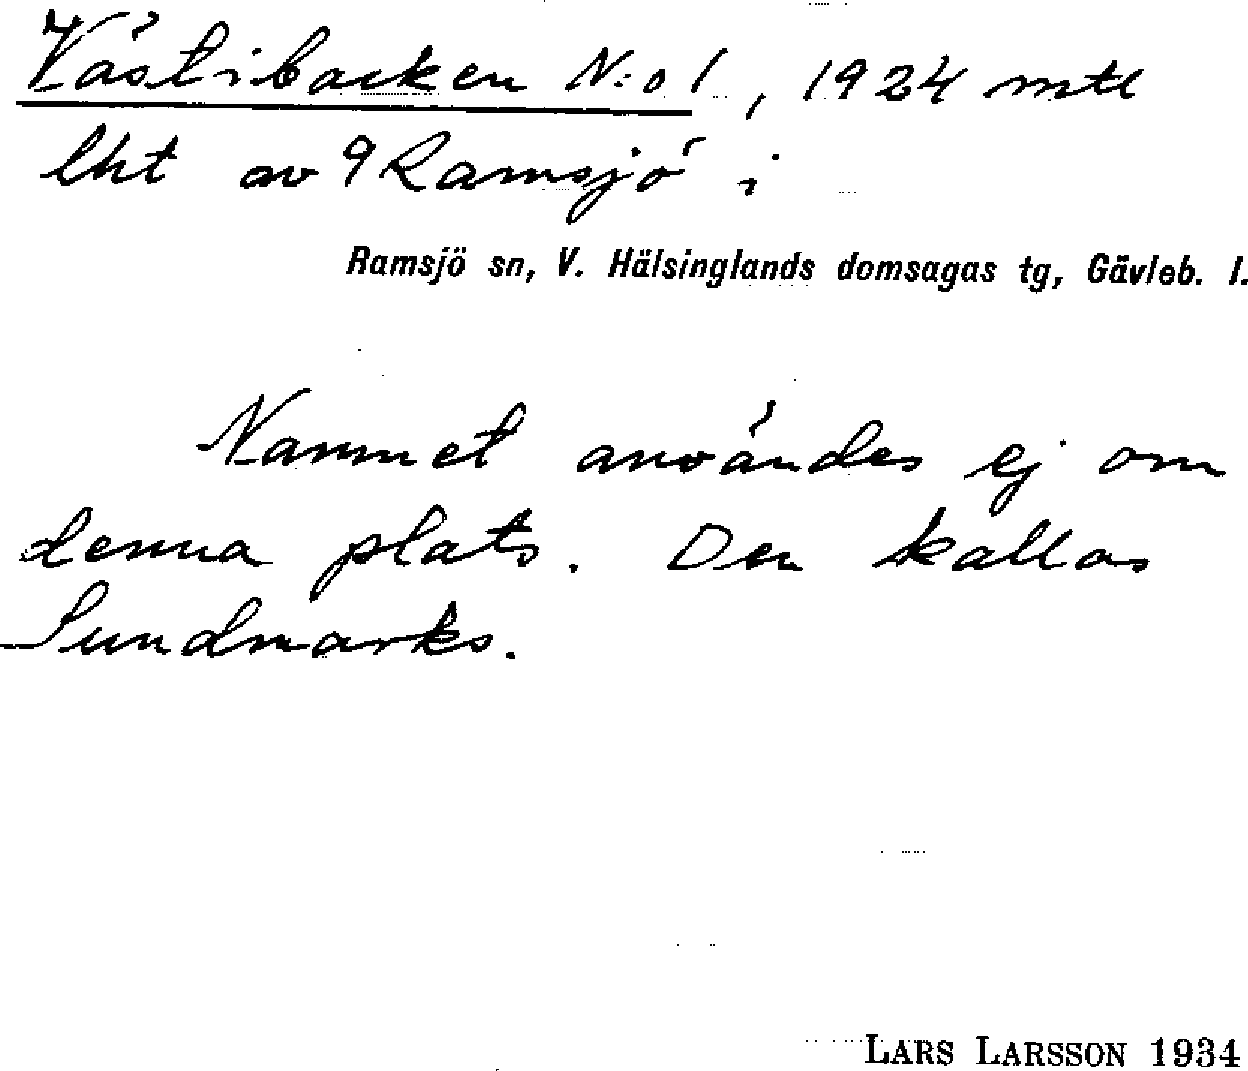 Västibacken N:o 1, 1924 mtl
lht av 9 Ramsjö i
Ramsjö sn, V. Hälsinglands domsagas tg, Gävleb. l.
Namnet användes ej om
denna plats. Den kallas
Sundmarks.
LARS LARSSON 1934